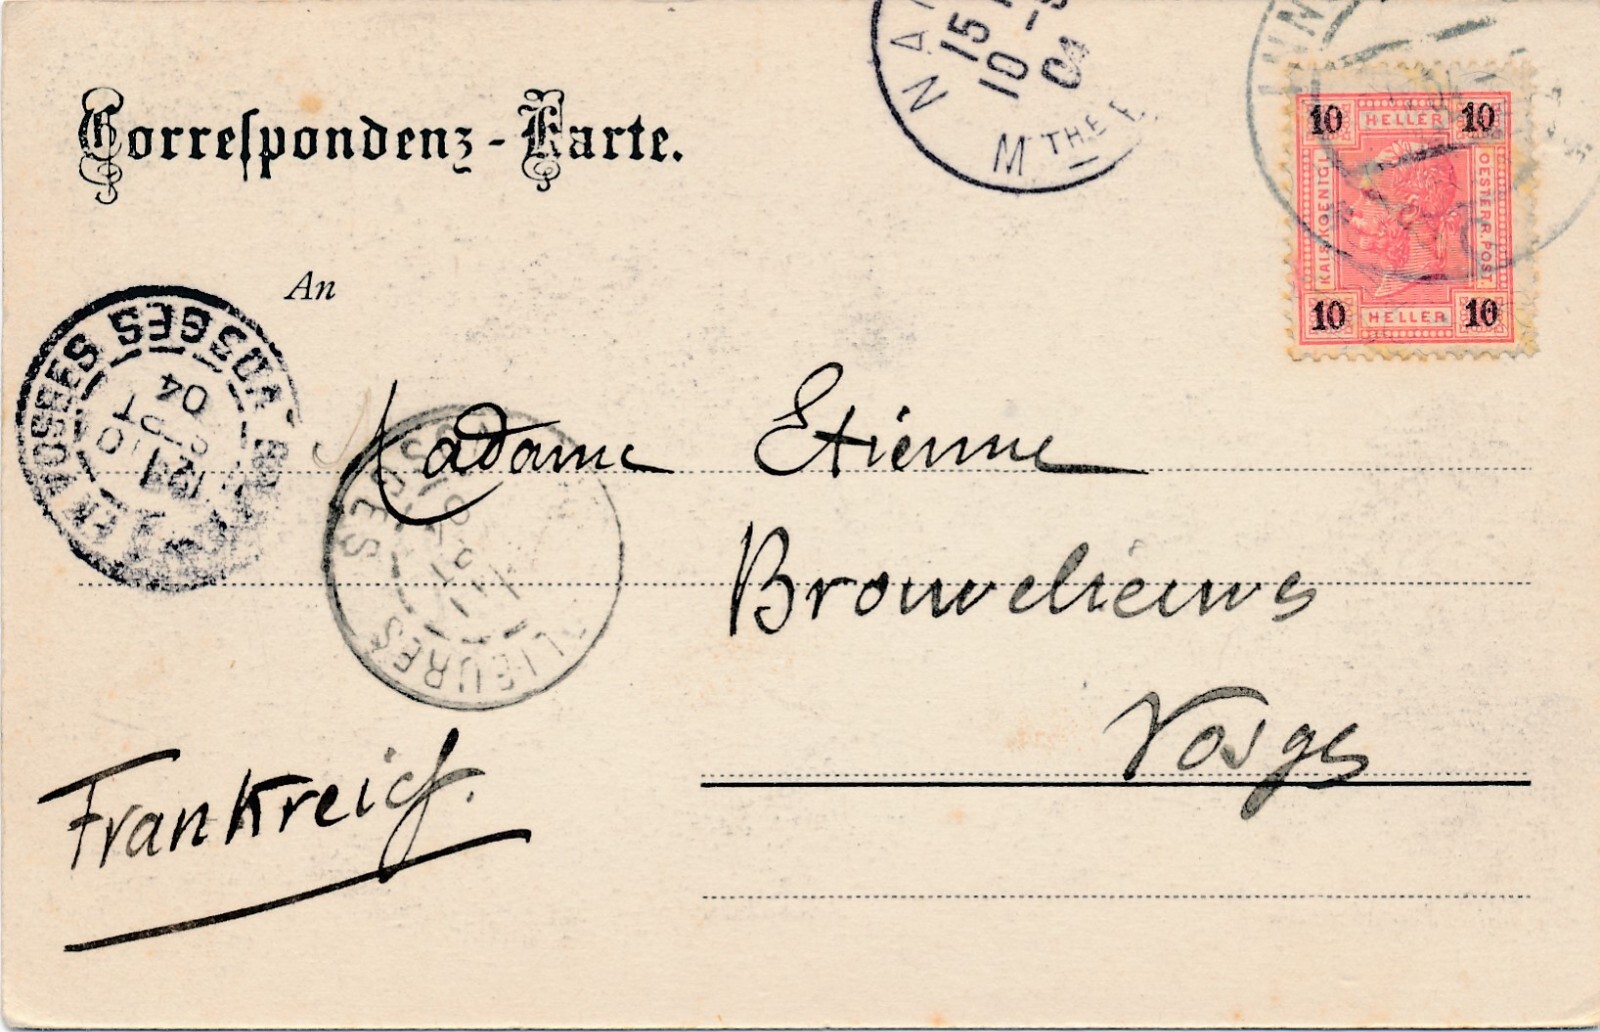 Correspondenz-Karte.
An
Madame Etienne
Brouwelieuws
Vosges
Frankreich.
10 HELLER 10
KAIS. KOENIGL.
OESTERR. POST.
10 HELLER 10
15
10
04
MTHE
VOSGES
04
LIEURES